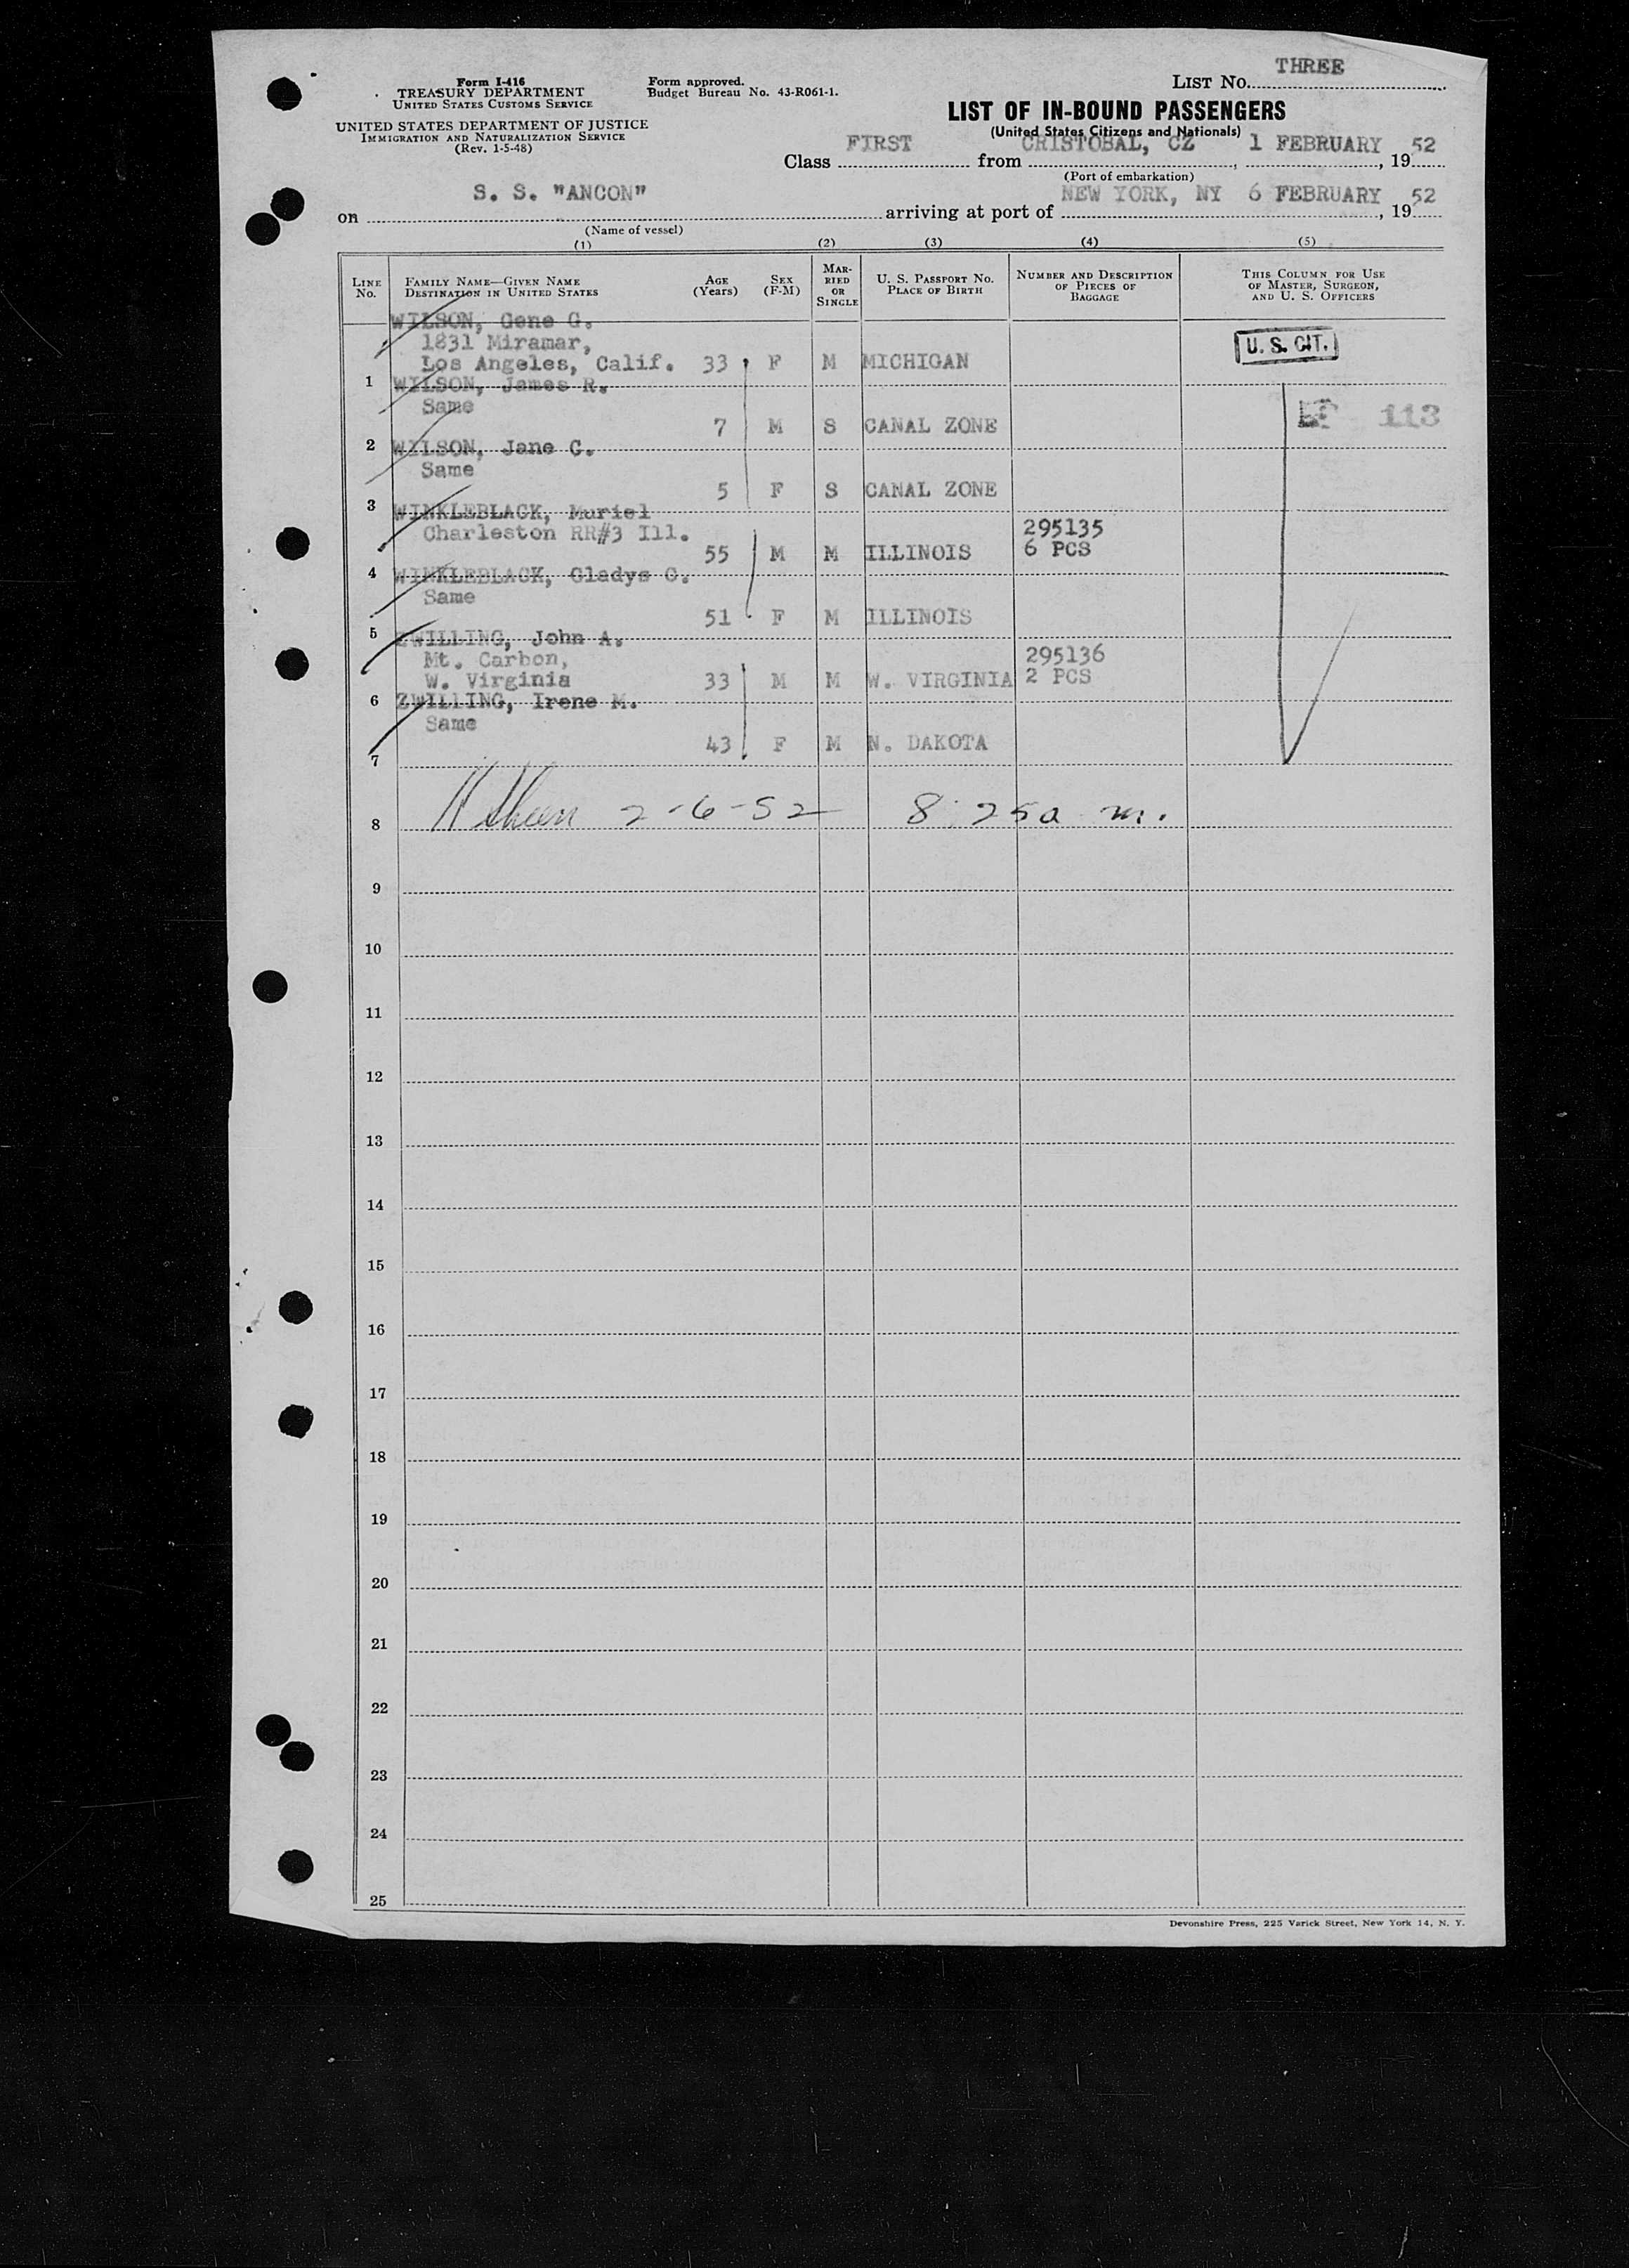 Form I-416
TREASURY DEPARTMENT
UNITED STATES CUSTOMS SERVICE
UNITED STATES DEPARTMENT OF JUSTICE
IMMIGRATION AND NATURALIZATION SERVICE
(Rev. 1-5-48)
Form approved.
Budget Bureau No. 43-R061-1.
LIST NO. THREE
LIST OF IN-BOUND PASSENGERS
(United States Citizens and Nationals)
Class FIRST from CRISTOBAL, CZ, 1 FEBRUARY, 1952
(Port of embarkation)
on S. S. "ANCON" arriving at port of NEW YORK, NY 6 FEBRUARY, 1952
(Name of vessel)
(1) (2) (3) (4) (5)
LINE NO. FAMILY NAME—GIVEN NAME DESTINATION IN UNITED STATES AGE (Years) SEX (F-M) MARRIED OR SINGLE U. S. PASSPORT NO. PLACE OF BIRTH NUMBER AND DESCRIPTION OF PIECES OF BAGGAGE THIS COLUMN FOR USE OF MASTER, SURGEON, AND U. S. OFFICERS
WILSON, Gene G.
1831 Miramar,
U. S. CIT.
Los Angeles, Calif. 33 F M MICHIGAN
1 WILSON, James R.
Same
113
7 M S CANAL ZONE
2 WILSON, Jane G.
Same
5 F S CANAL ZONE
3 WINKLEBLACK, Muriel
Charleston RR#3 Ill. 295135
55 M M ILLINOIS 6 PCS
4 WINKLEBLACK, Gladys O.
Same
51 F M ILLINOIS
5 ZWILLING, John A.
Mt. Carbon, 295136
W. Virginia 33 M M W. VIRGINIA 2 PCS
6 ZWILLING, Irene M.
Same
43 F M N. DAKOTA
7
8 2-6-52 8:25a m.
9
10
11
12
13
14
15
16
17
18
19
20
21
22
23
24
25
Devonshire Press, 225 Varick Street, New York 14, N. Y.